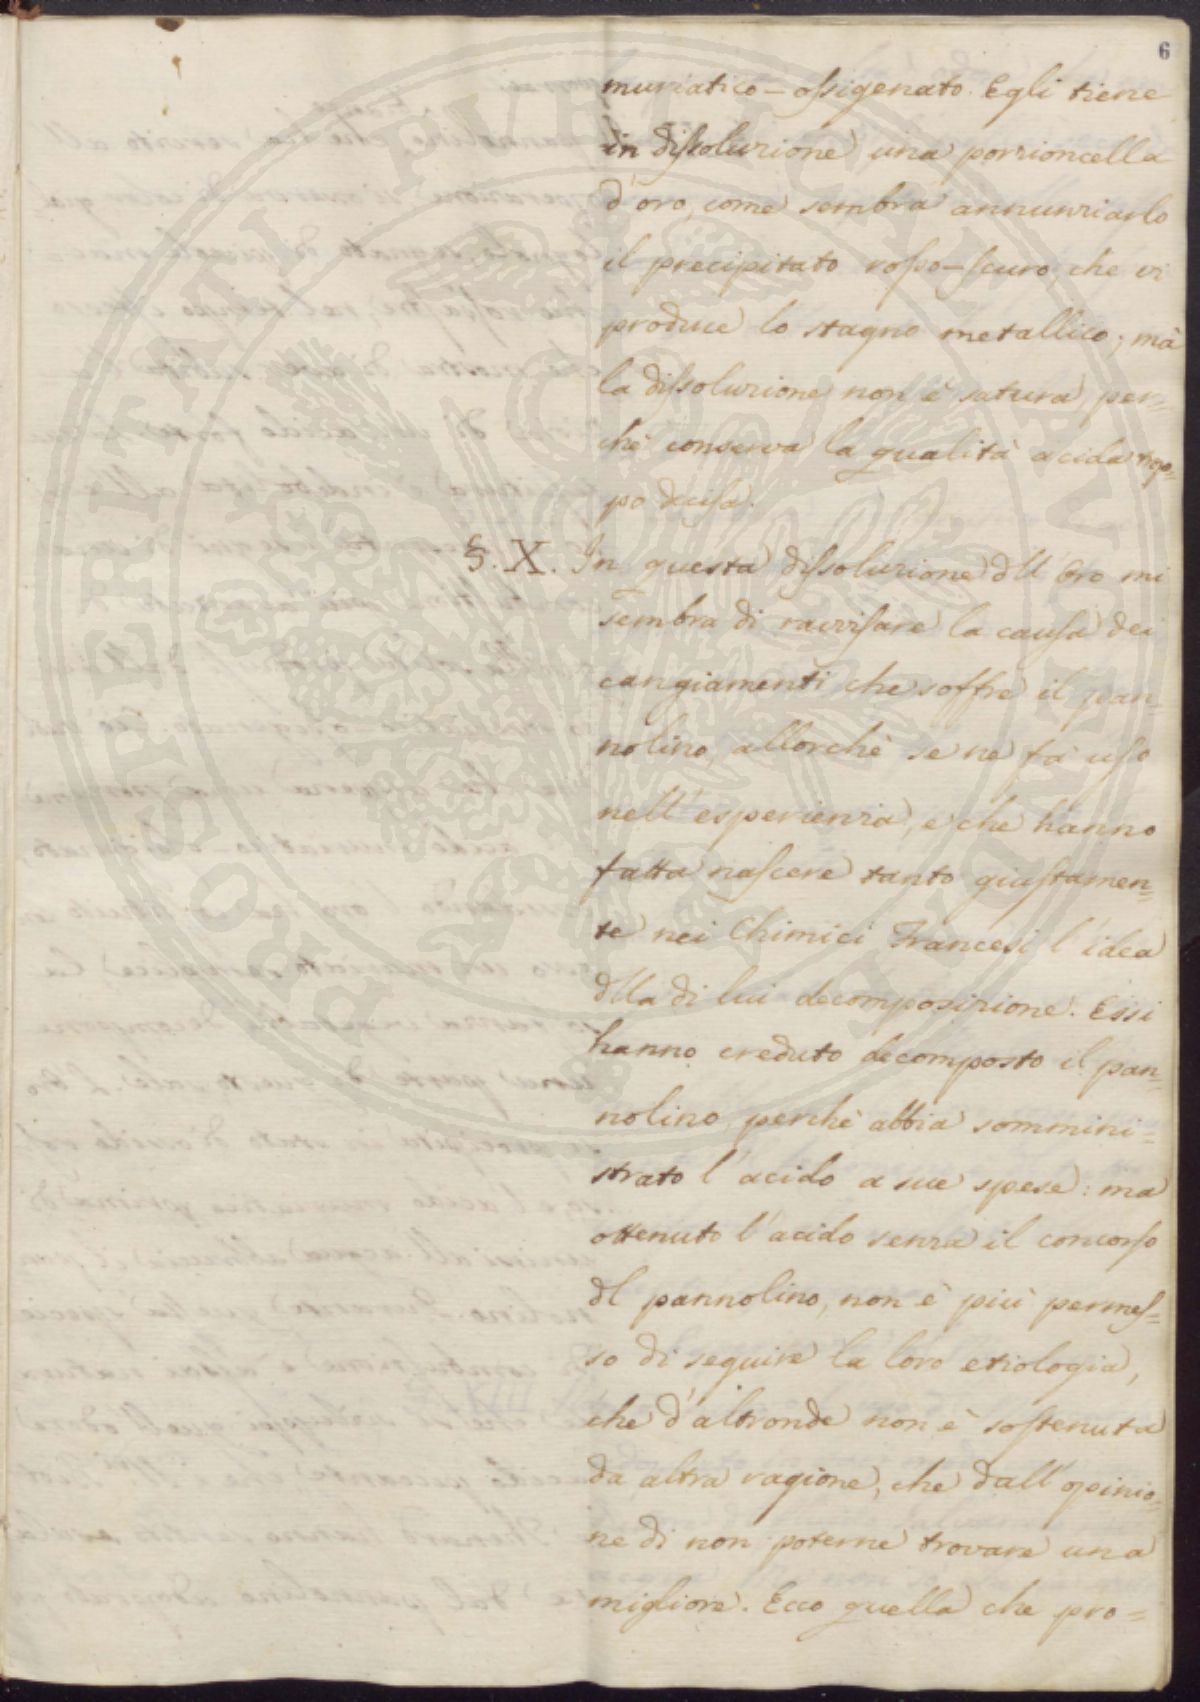 6
muriatico-ossigenato. Egli tiene
in dissoluzione una porzioncella
d'oro, come sembra annunziarlo
il precipitato rosso-scuro, che vi
produce lo stagno metallico; mà
la dissoluzione non è satura per=
chè conserva la qualità acida trop=
po decisa.
§. X. In questa dissoluzione dll'Oro mi
sembra di ravvisare la causa dei
cangiamenti che soffre il pan=
nolino, allorchè se ne fà uso
nell'esperienza, e che hanno
fatta nascere tanto giustamen=
te nei Chimici Francesi l'idea
dlla di lui decomposizione. Essi
hanno creduto decomposto il pan=
nolino, perchè abbia sommini=
strato l'acido a sue spese: ma
ottenuto l'acido senza il concorso
dl pannolino, non è più permes=
so di seguire la loro etiologia,
che d'altronde non è sostenuta
da altra ragione, che dall'opinio=
ne di non poterne trovare una
migliore. Ecco quella che pro=
PROSPERITATI PVBLICAE AVGENDAE